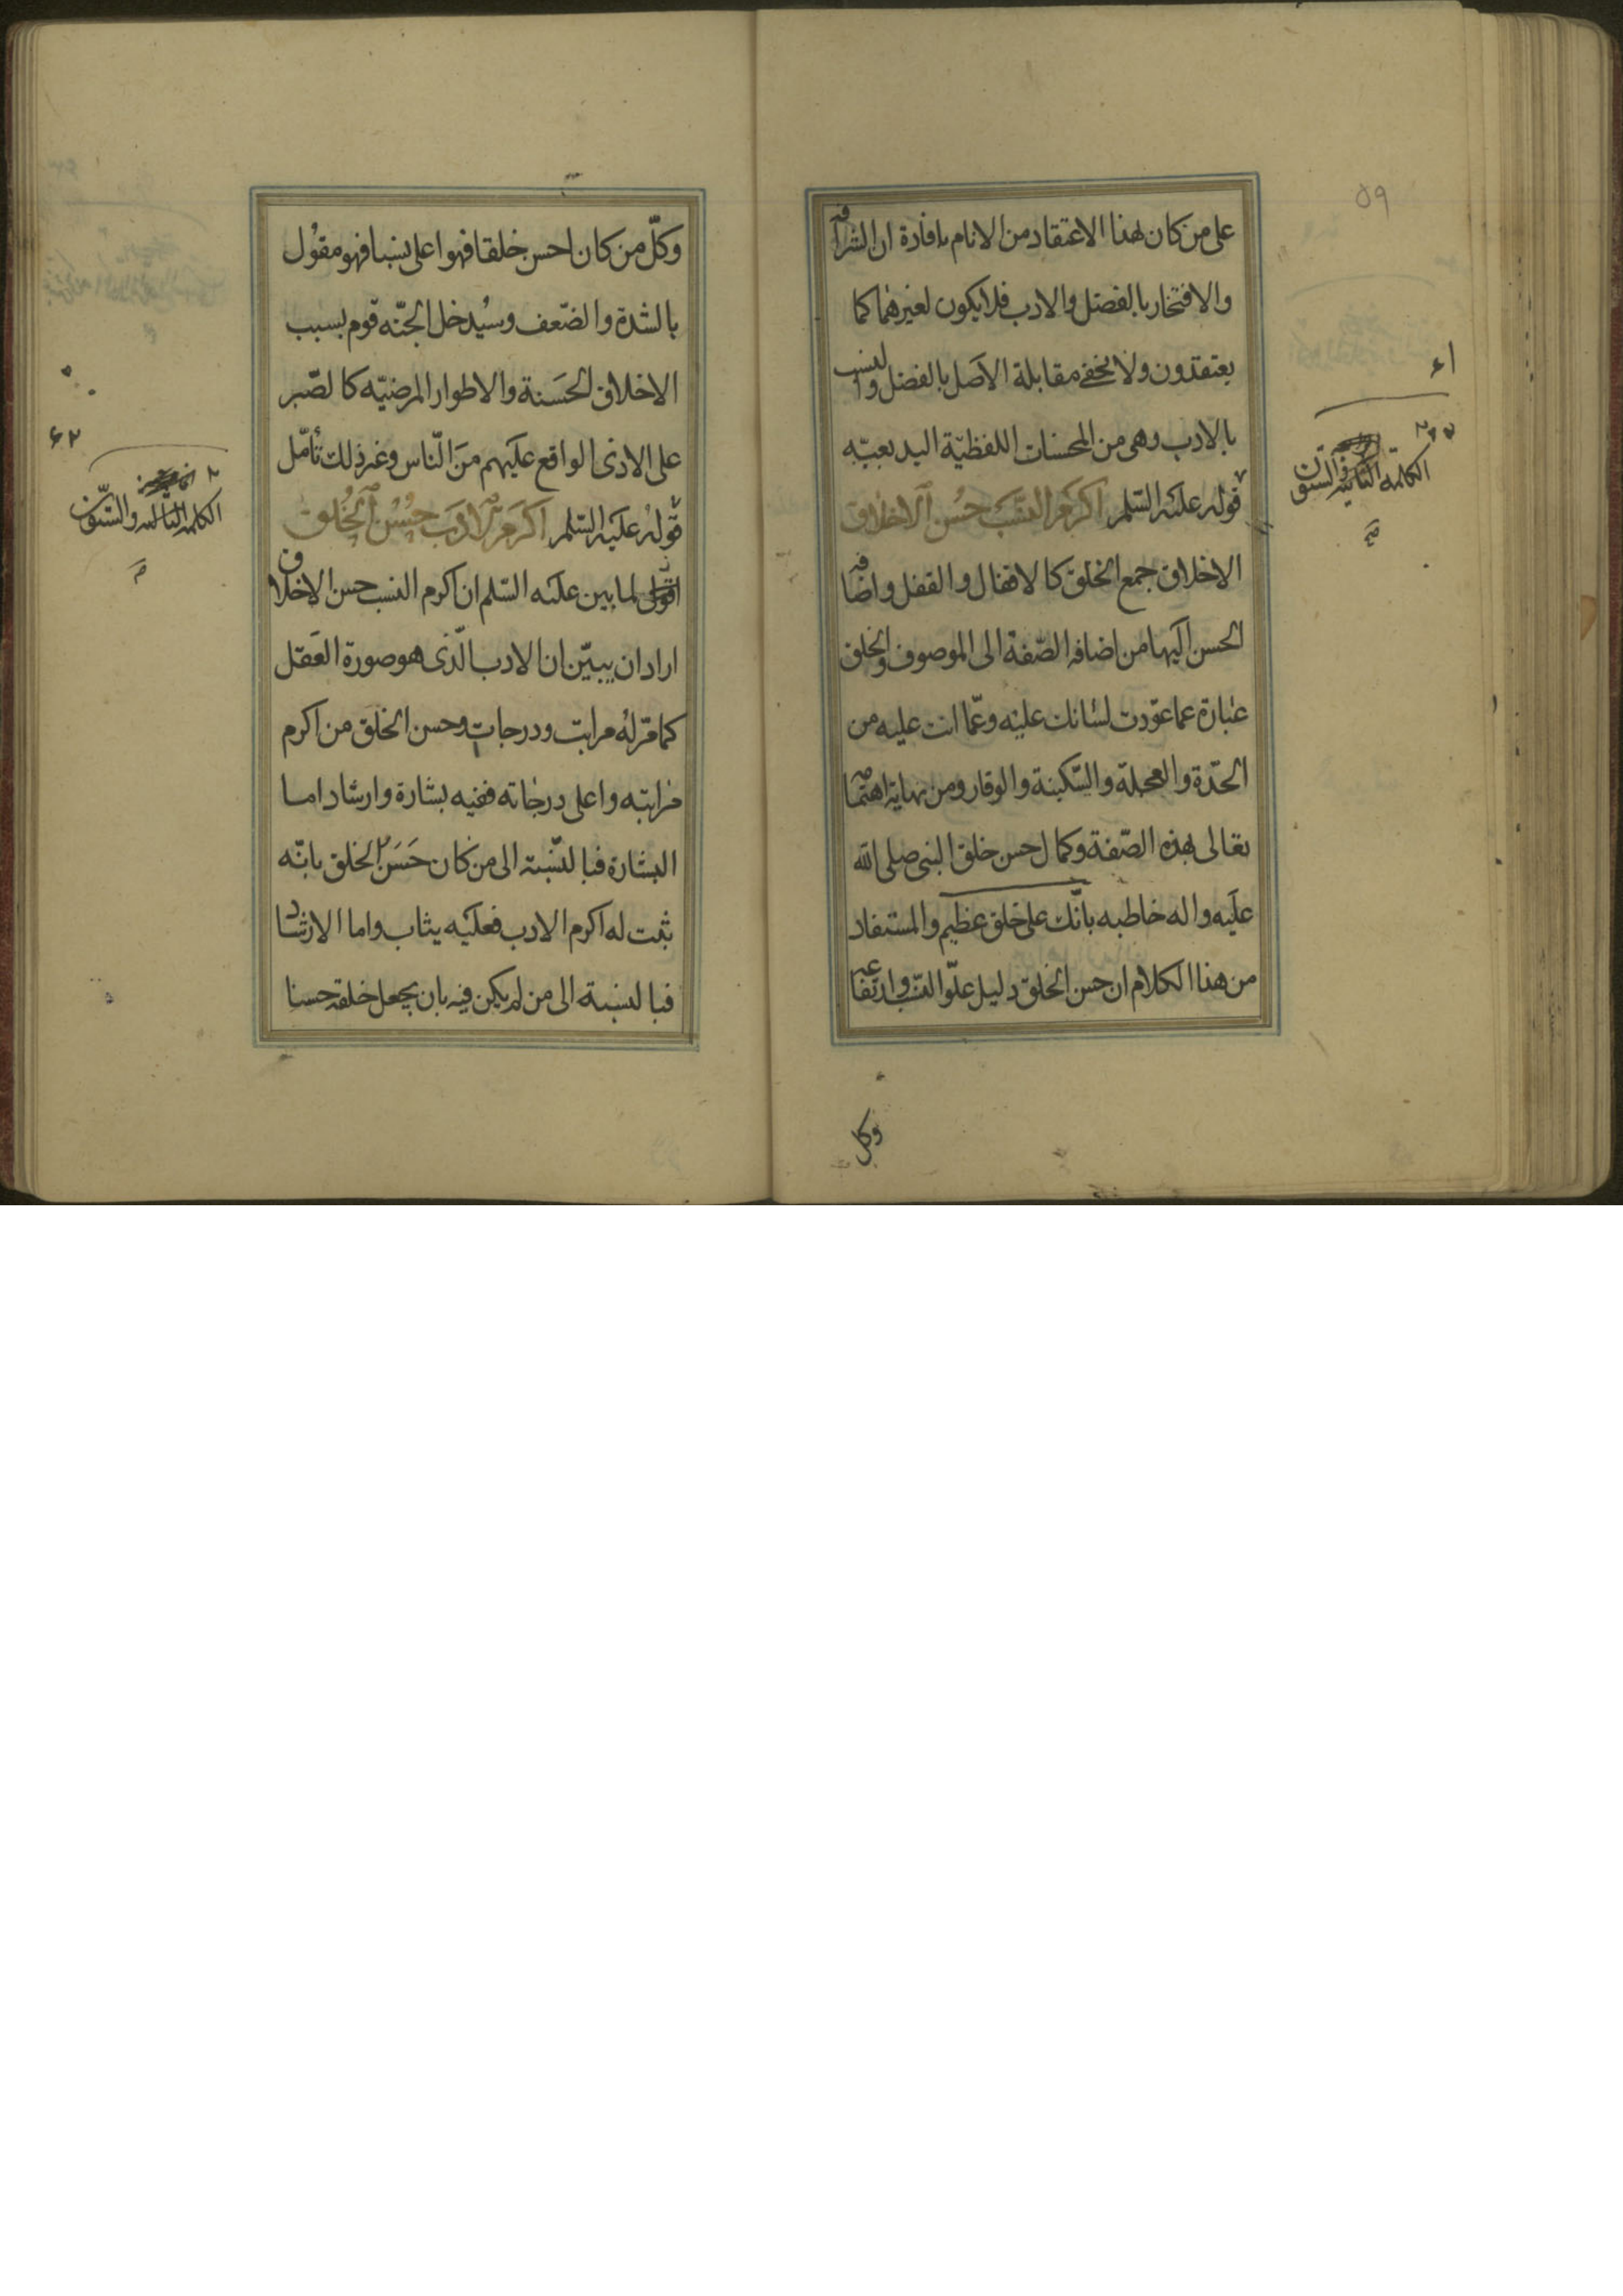 ٥٩
على من كان لهذا الاعتقاد من الانام بافادة ان الشرافة
والافتخار بالفضل والادب فلا يكون لغيرهما كما
يعتقدون ولا يخفى مقابلة الاصل بالفضل والنسب
بالادب وهى من المحسنات اللفظيّة البديعيّه
قوله عليه السّلم اكرم النسب حسن الاخلاق
الاخلاق جمع الخلق كالاقفال والقفل واضافه
الحسن اليها من اضافه الصّفة الى الموصوف والخلق
عبارة عما عوّدت لسانك عليه وعمّا انت عليه من
الحدّة والعجلة والسّكينة والوقار ومن نهاية اهتمامه
تعالى بهذه الصّفة وكمال حسن خلق النبى صلى الله
عليه واله خاطبه بانّك على خلق عظيم والمستفاد
من هذا الكلام ان حسن الخلق دليل علوّ النسب وارتفاعه
وكل
٦١
الكلمة الثانية والستون
وكلّ من كان احسن خلقا فهو اعلى نسبا فهو مقول
بالشدة والضّعف وسيُدخل الجنّه قوم بسبب
الاخلاق الحَسَنة والاطوار المرضيّه كالصّبر
على الاذى الواقع عليهم من النّاس وغير ذلك تأمّل
قوله عليه السّلم اكرم الادب حُسْن الخُلق
اقول لما بين عليه السّلم ان اكرم النسب حسن الاخلاق
اراد ان يبيّن ان الادب الّذى هو صورة العقل
كما مرّ له مراتب ودرجات وحسن الخلق من اكرم
مراتبه واعلى درجاته ففيه بشارة وارشاد اما
البشارة فبالنّسبة الى من كان حَسَن الخلق بانّه
ثبت له اكرم الادب فعليه يثاب واما الارشاد
فبالنسبة الى من لم يكن فيه بان يجعل خلقه حسنا
٦٢
الكلمة الثالثة والستّون